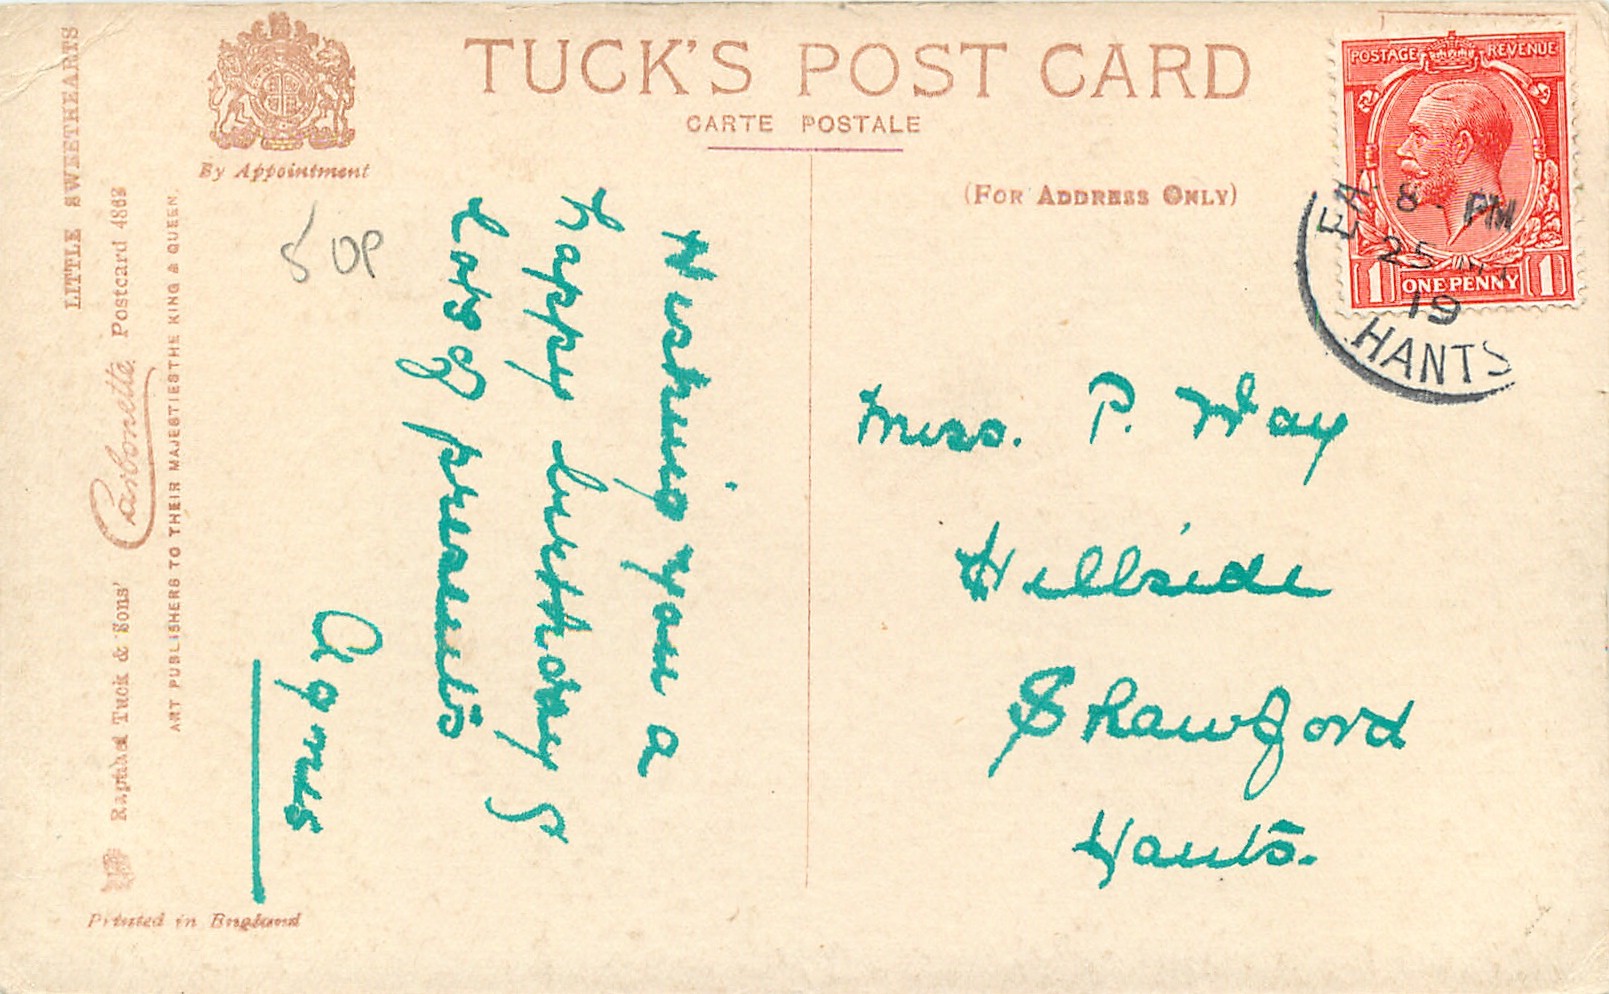 TUCK'S POST CARD
CARTE POSTALE
(FOR ADDRESS ONLY)
By Appointment
LITTLE SWEETHEARTS
Raphael Tuck & Sons' Carbonette Postcard 4863
ART PUBLISHERS TO THEIR MAJESTIES THE KING & QUEEN.
Printed in England
50P
Wishing you a
happy birthday &
lots of presents
Agnes
POSTAGE REVENUE
1 ONE PENNY 1
8 - PM
25
19
HANTS
Miss. P. Way
Hillside
Shawford
Hants.